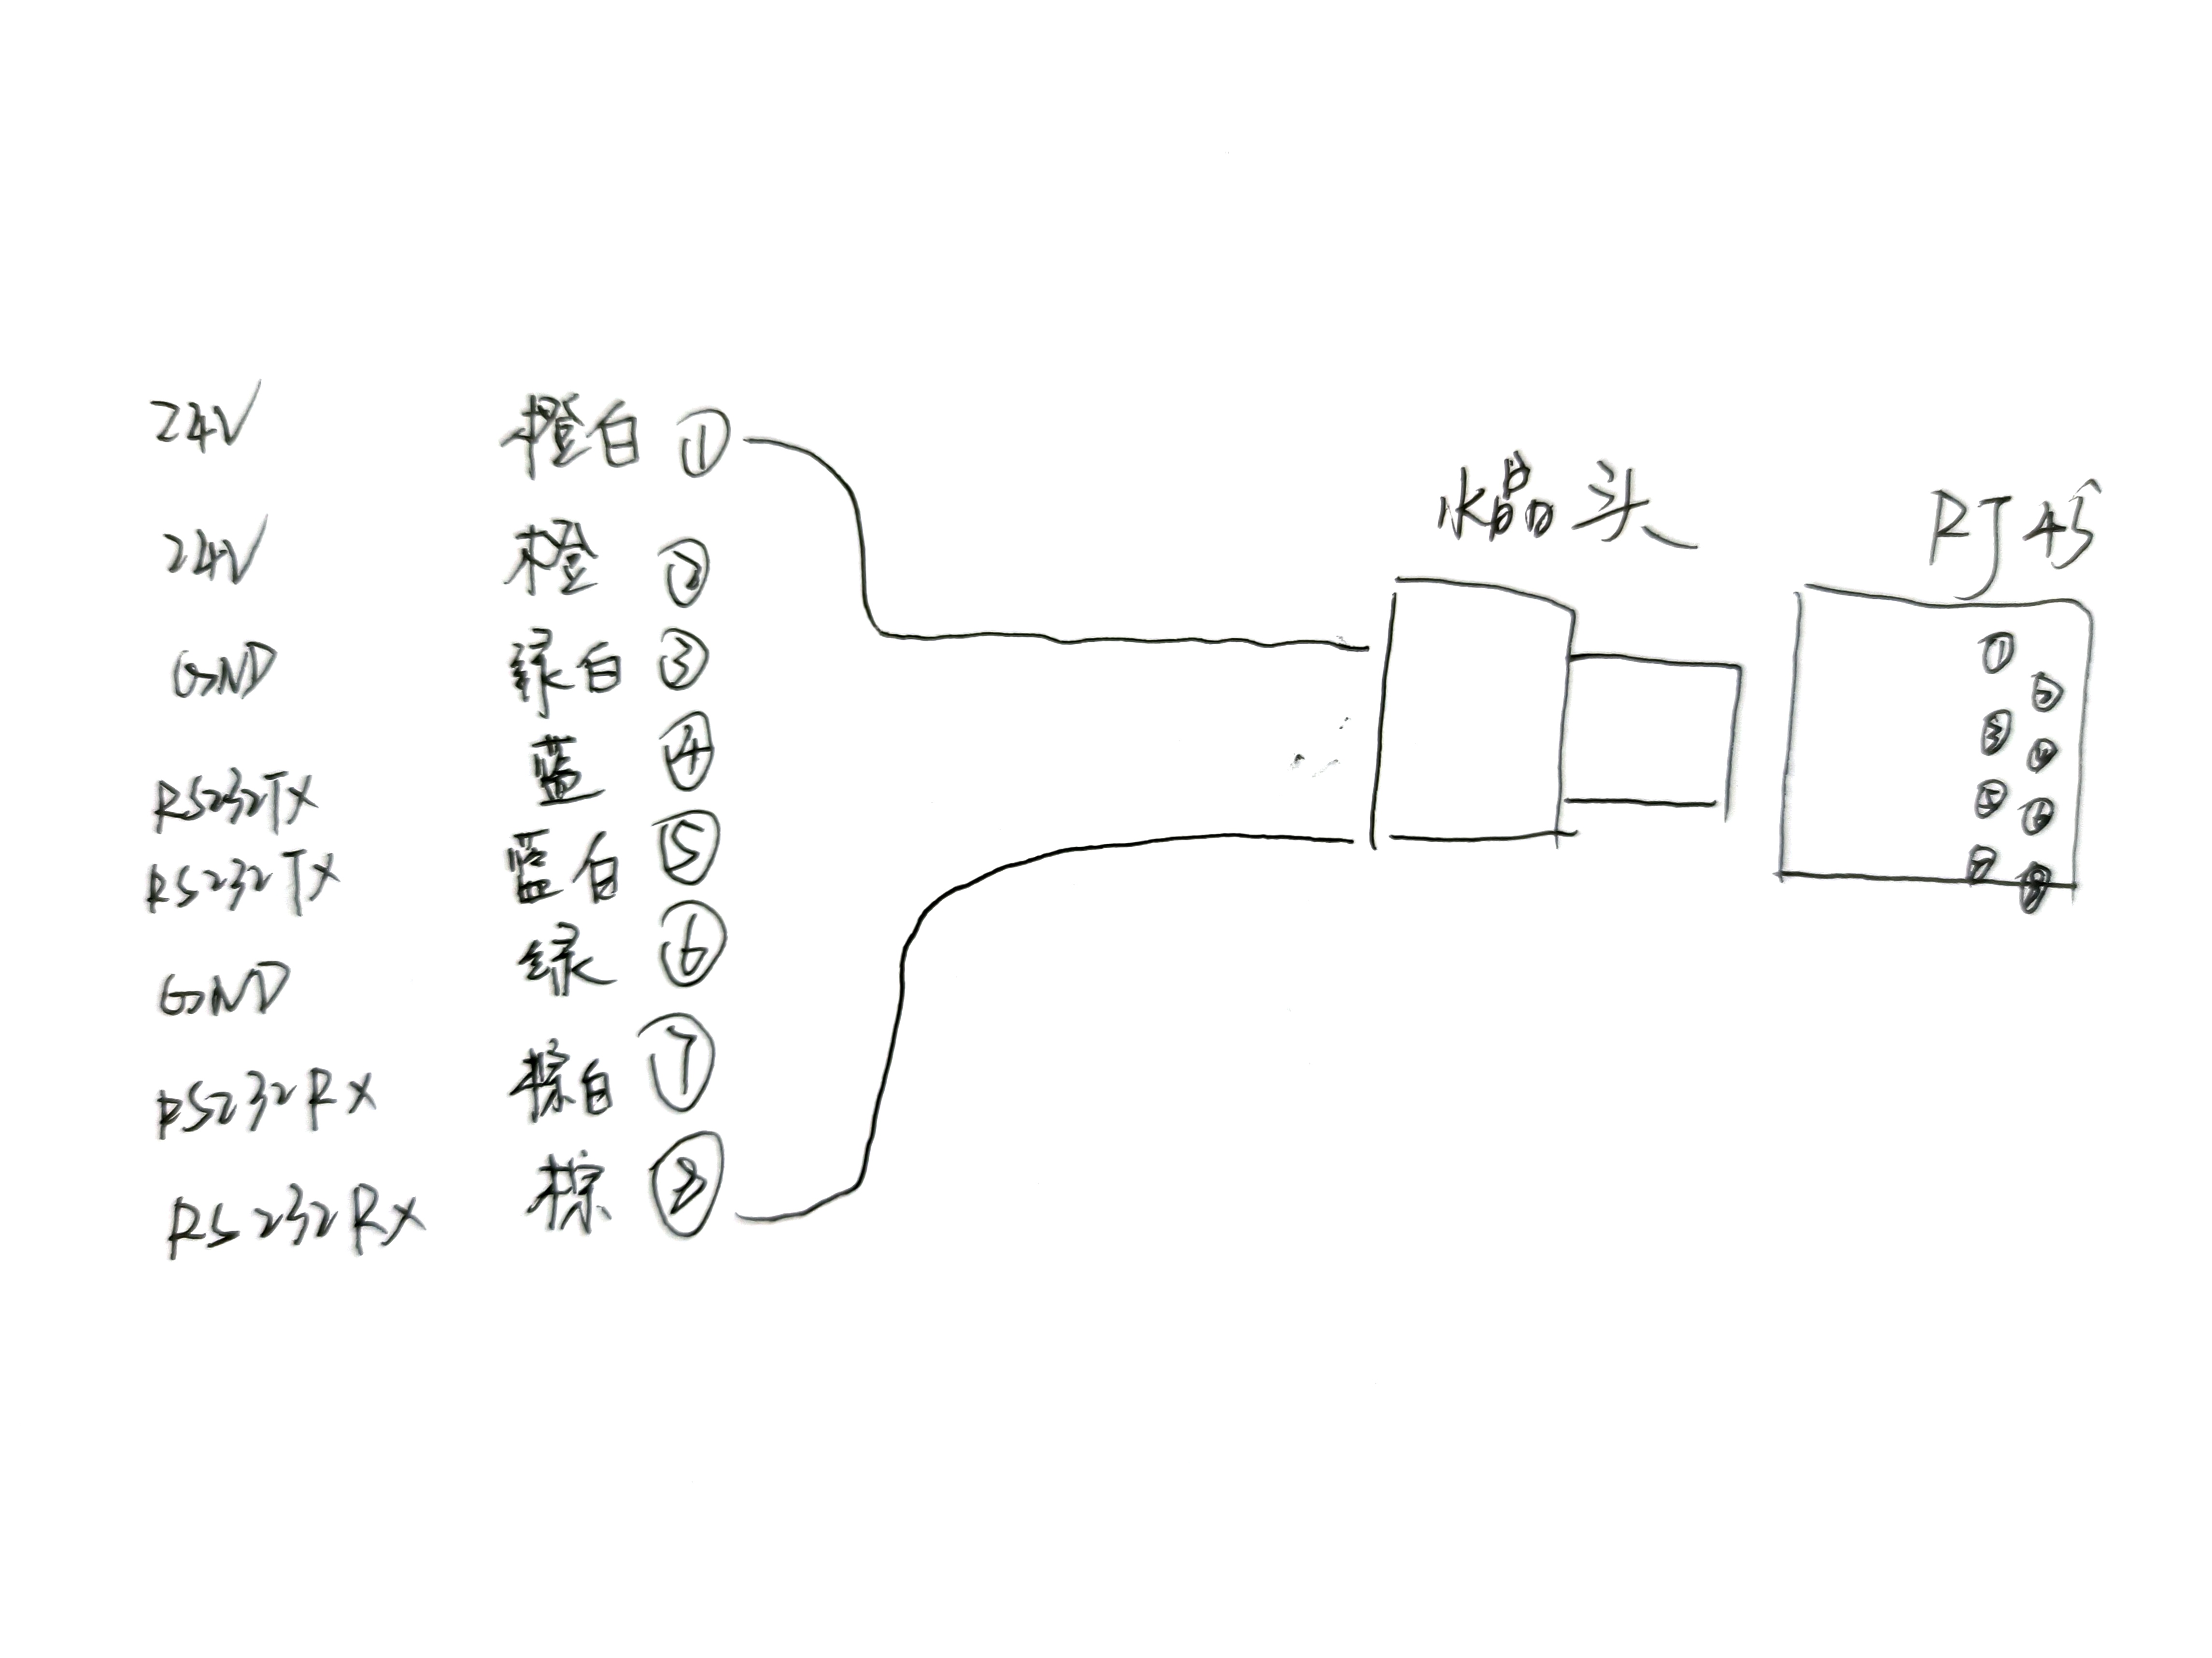 24V 橙白 ①
24V 橙 ②
GND 绿白 ③
RS232TX 蓝 ④
RS232TX 蓝白 ⑤
GND 绿 ⑥
RS232RX 棕白 ⑦
RS232RX 棕 ⑧
水晶头
RJ45
①
②
③
④
⑤
⑥
⑦
⑧